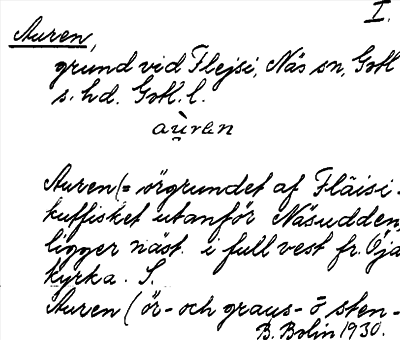 I.
Auren,
grund vid Flejsi, Näs sn, Gotl
s. hd. Gotl. l.
aù̯ren
Auren (= örgrundet af Fläisi-
kuffisket utanför Näsudden,
ligger näst. i full vest fr. Öja
kyrka. S.
Auren (ör- och graus- o̅ sten-
B. Bolin 1930.